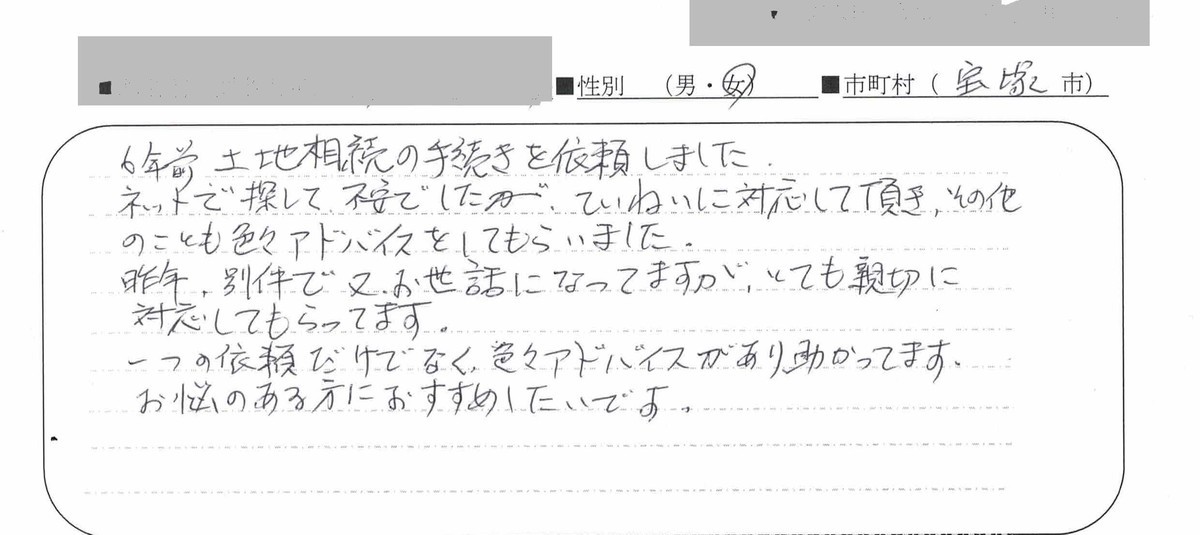 ■性別 （男・女） ■市町村（宝塚市）
6年前 土地相続の手続きを依頼しました.
ネットで探して、不安でしたが、ていねいに対応して頂き、その他
のことも色々アドバイスをしてもらいました.
昨年、別件で又、お世話になってますが、とても親切に
対応してもらってます。
一つの依頼だけでなく、色々アドバイスがあり助かってます.
お悩のある方におすすめしたいです。